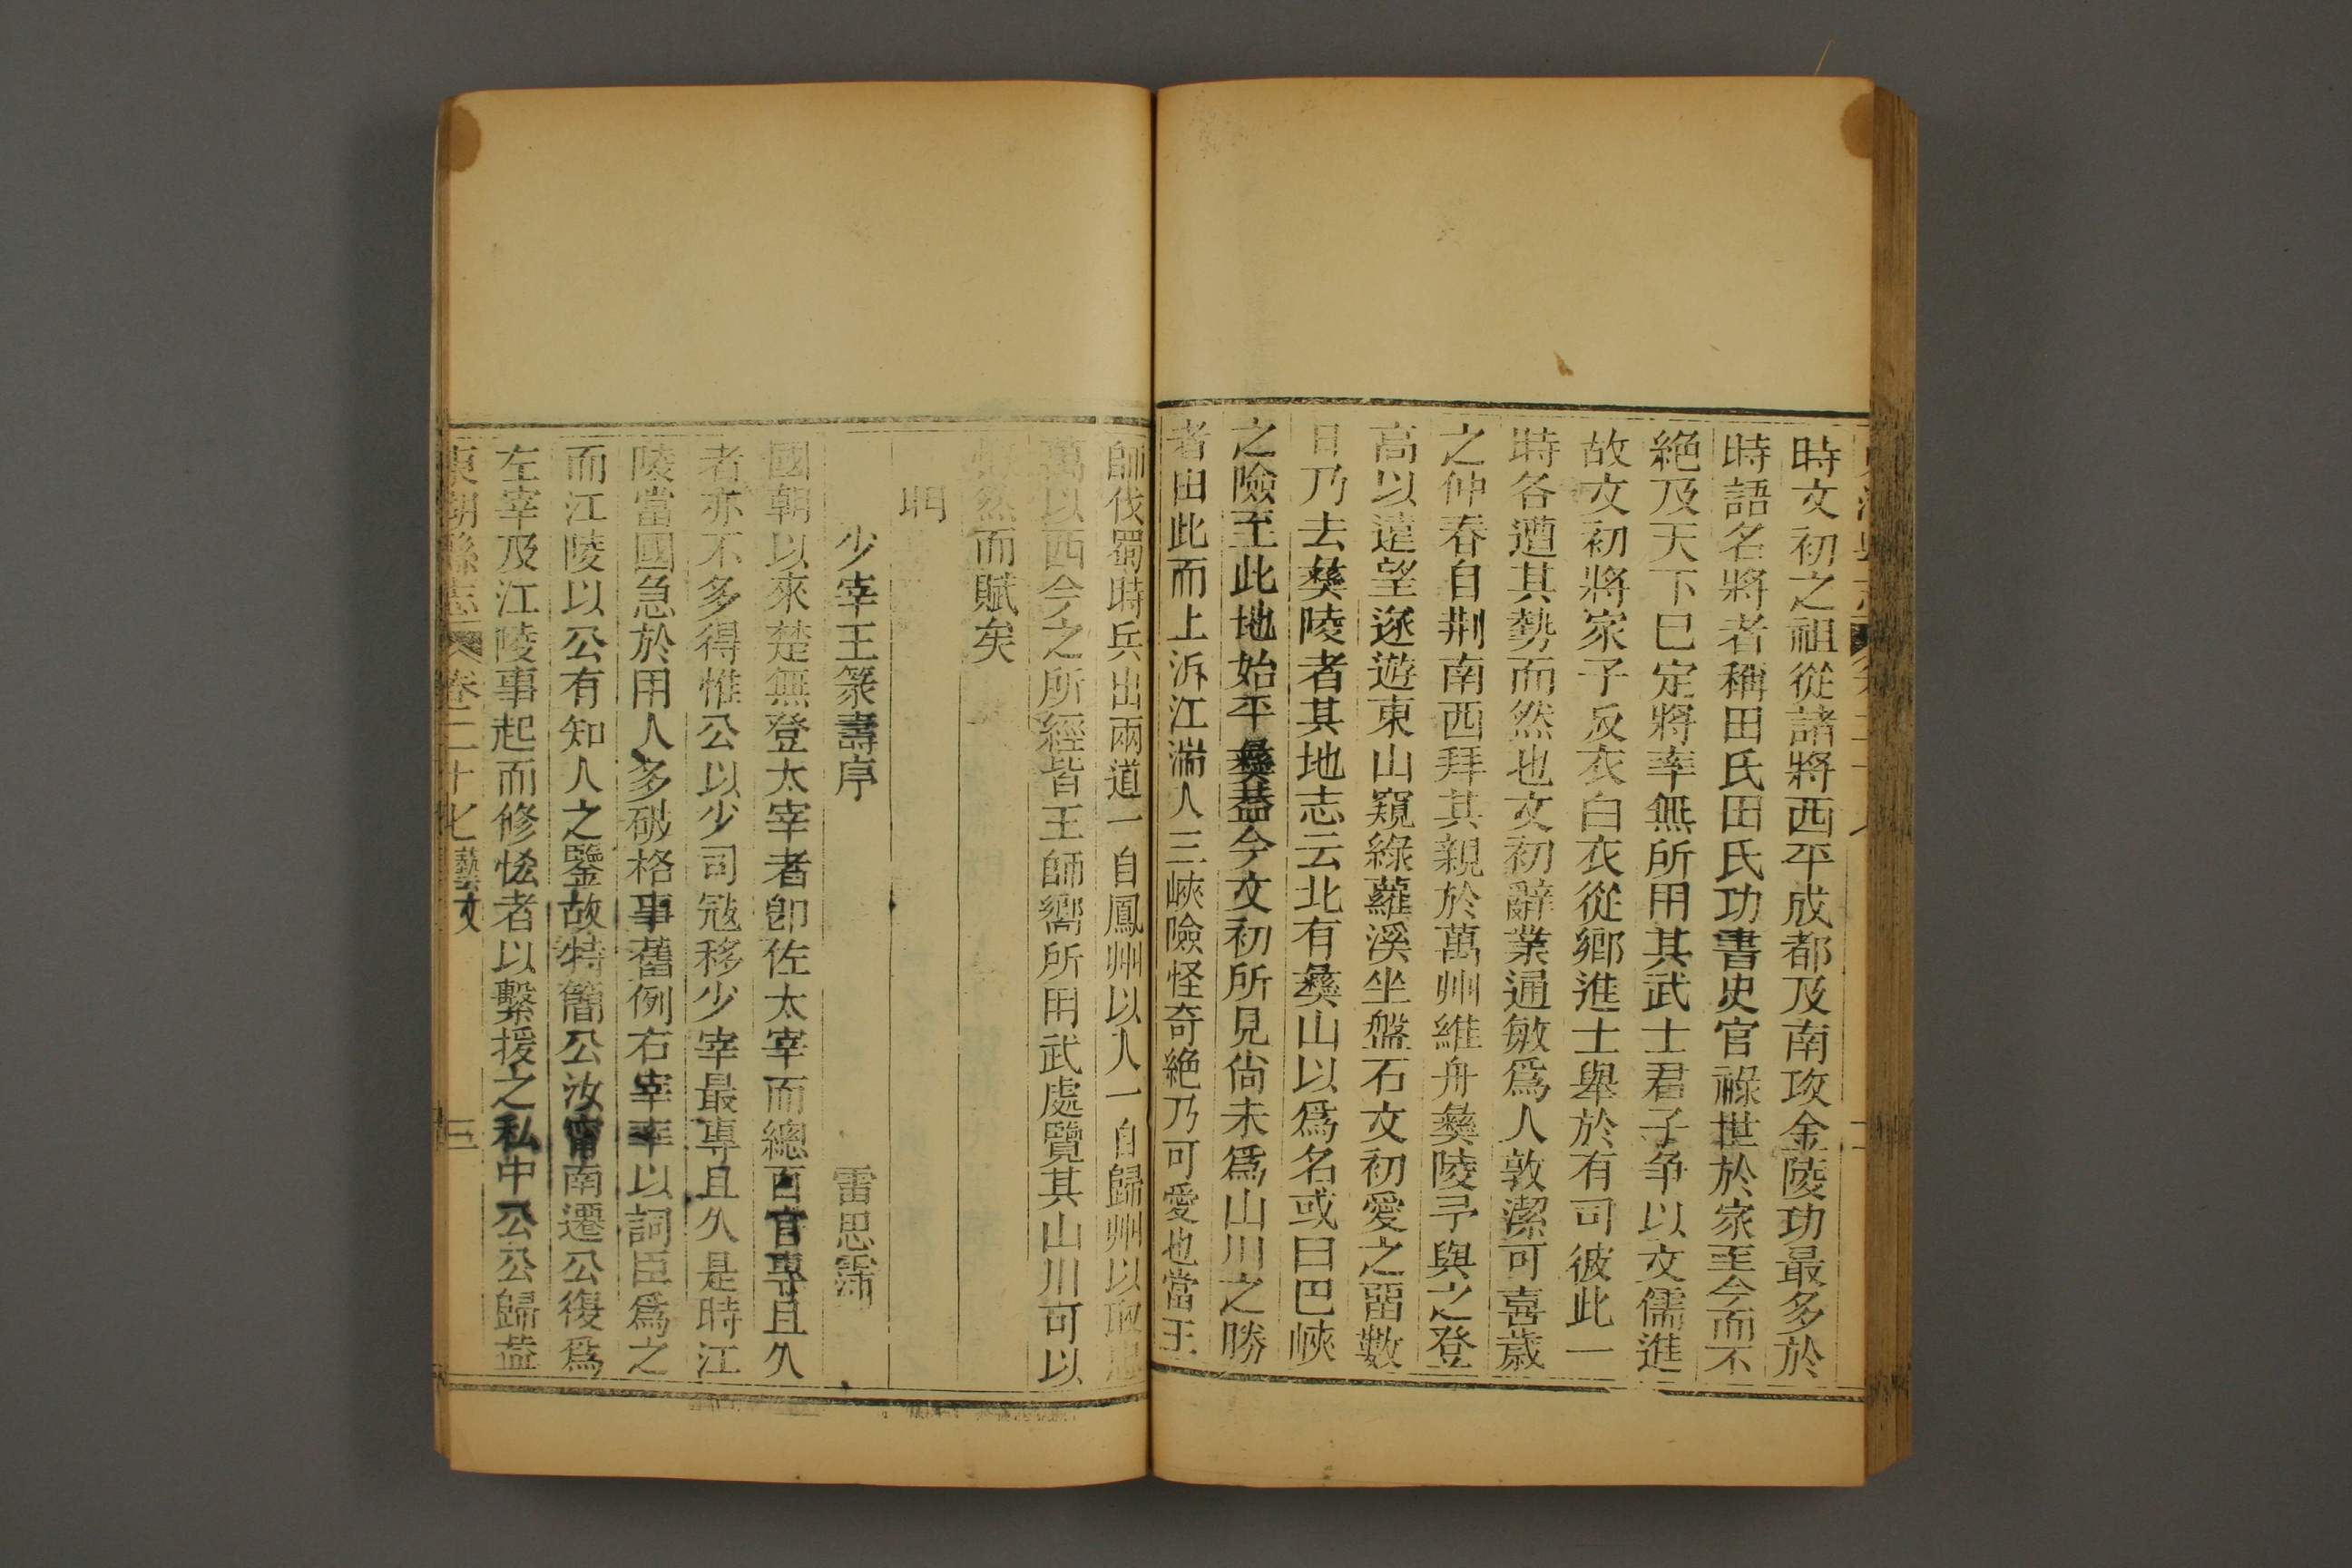 時文初之祖從諸將西平成都及南攻金陵功最多於
時語名將者稱田氏田氏功書史官祿世於家至今而不
絕及天下巳定將率無所用其武士君子争以文儒進
故文初將家子反衣白衣從鄉進士舉於有司彼此一
時各遭其勢而然也文初辭業通敏爲人敦潔可喜歳
之仲春自荆南西拜其親於萬州維舟彝陵予與之登
高以遠望遂遊東山窺綠蘿溪坐盤石文初愛之畱數
日乃去彝陵者其地志云北有彝山以爲名或曰巴峽
之險至此地始平彝葢今文初所見尙未爲山川之勝
者由此而上泝江湍入三峽險怪奇絶乃可愛也當王
師伐蜀時兵出兩道一自鳳州以入一自歸州以取忠
萬以西今之所經皆王師嚮所用武處覽其山川可以
然而賦矣
明
少宰王篆壽序 雷思霈
國朝以來楚無登太宰者卽佐太宰而總百官專且久
者亦不多得惟公以少司冦移少宰最專且久是時江
陵當國急於用人多破格事舊例右宰率以詞臣爲之
而江陵以公有知人之鑒故特簡公汝甯南遷公復爲
左宰及江陵事起而修恡者以繫援之私中公公歸葢
東湖縣志 卷二十七 藝文 三